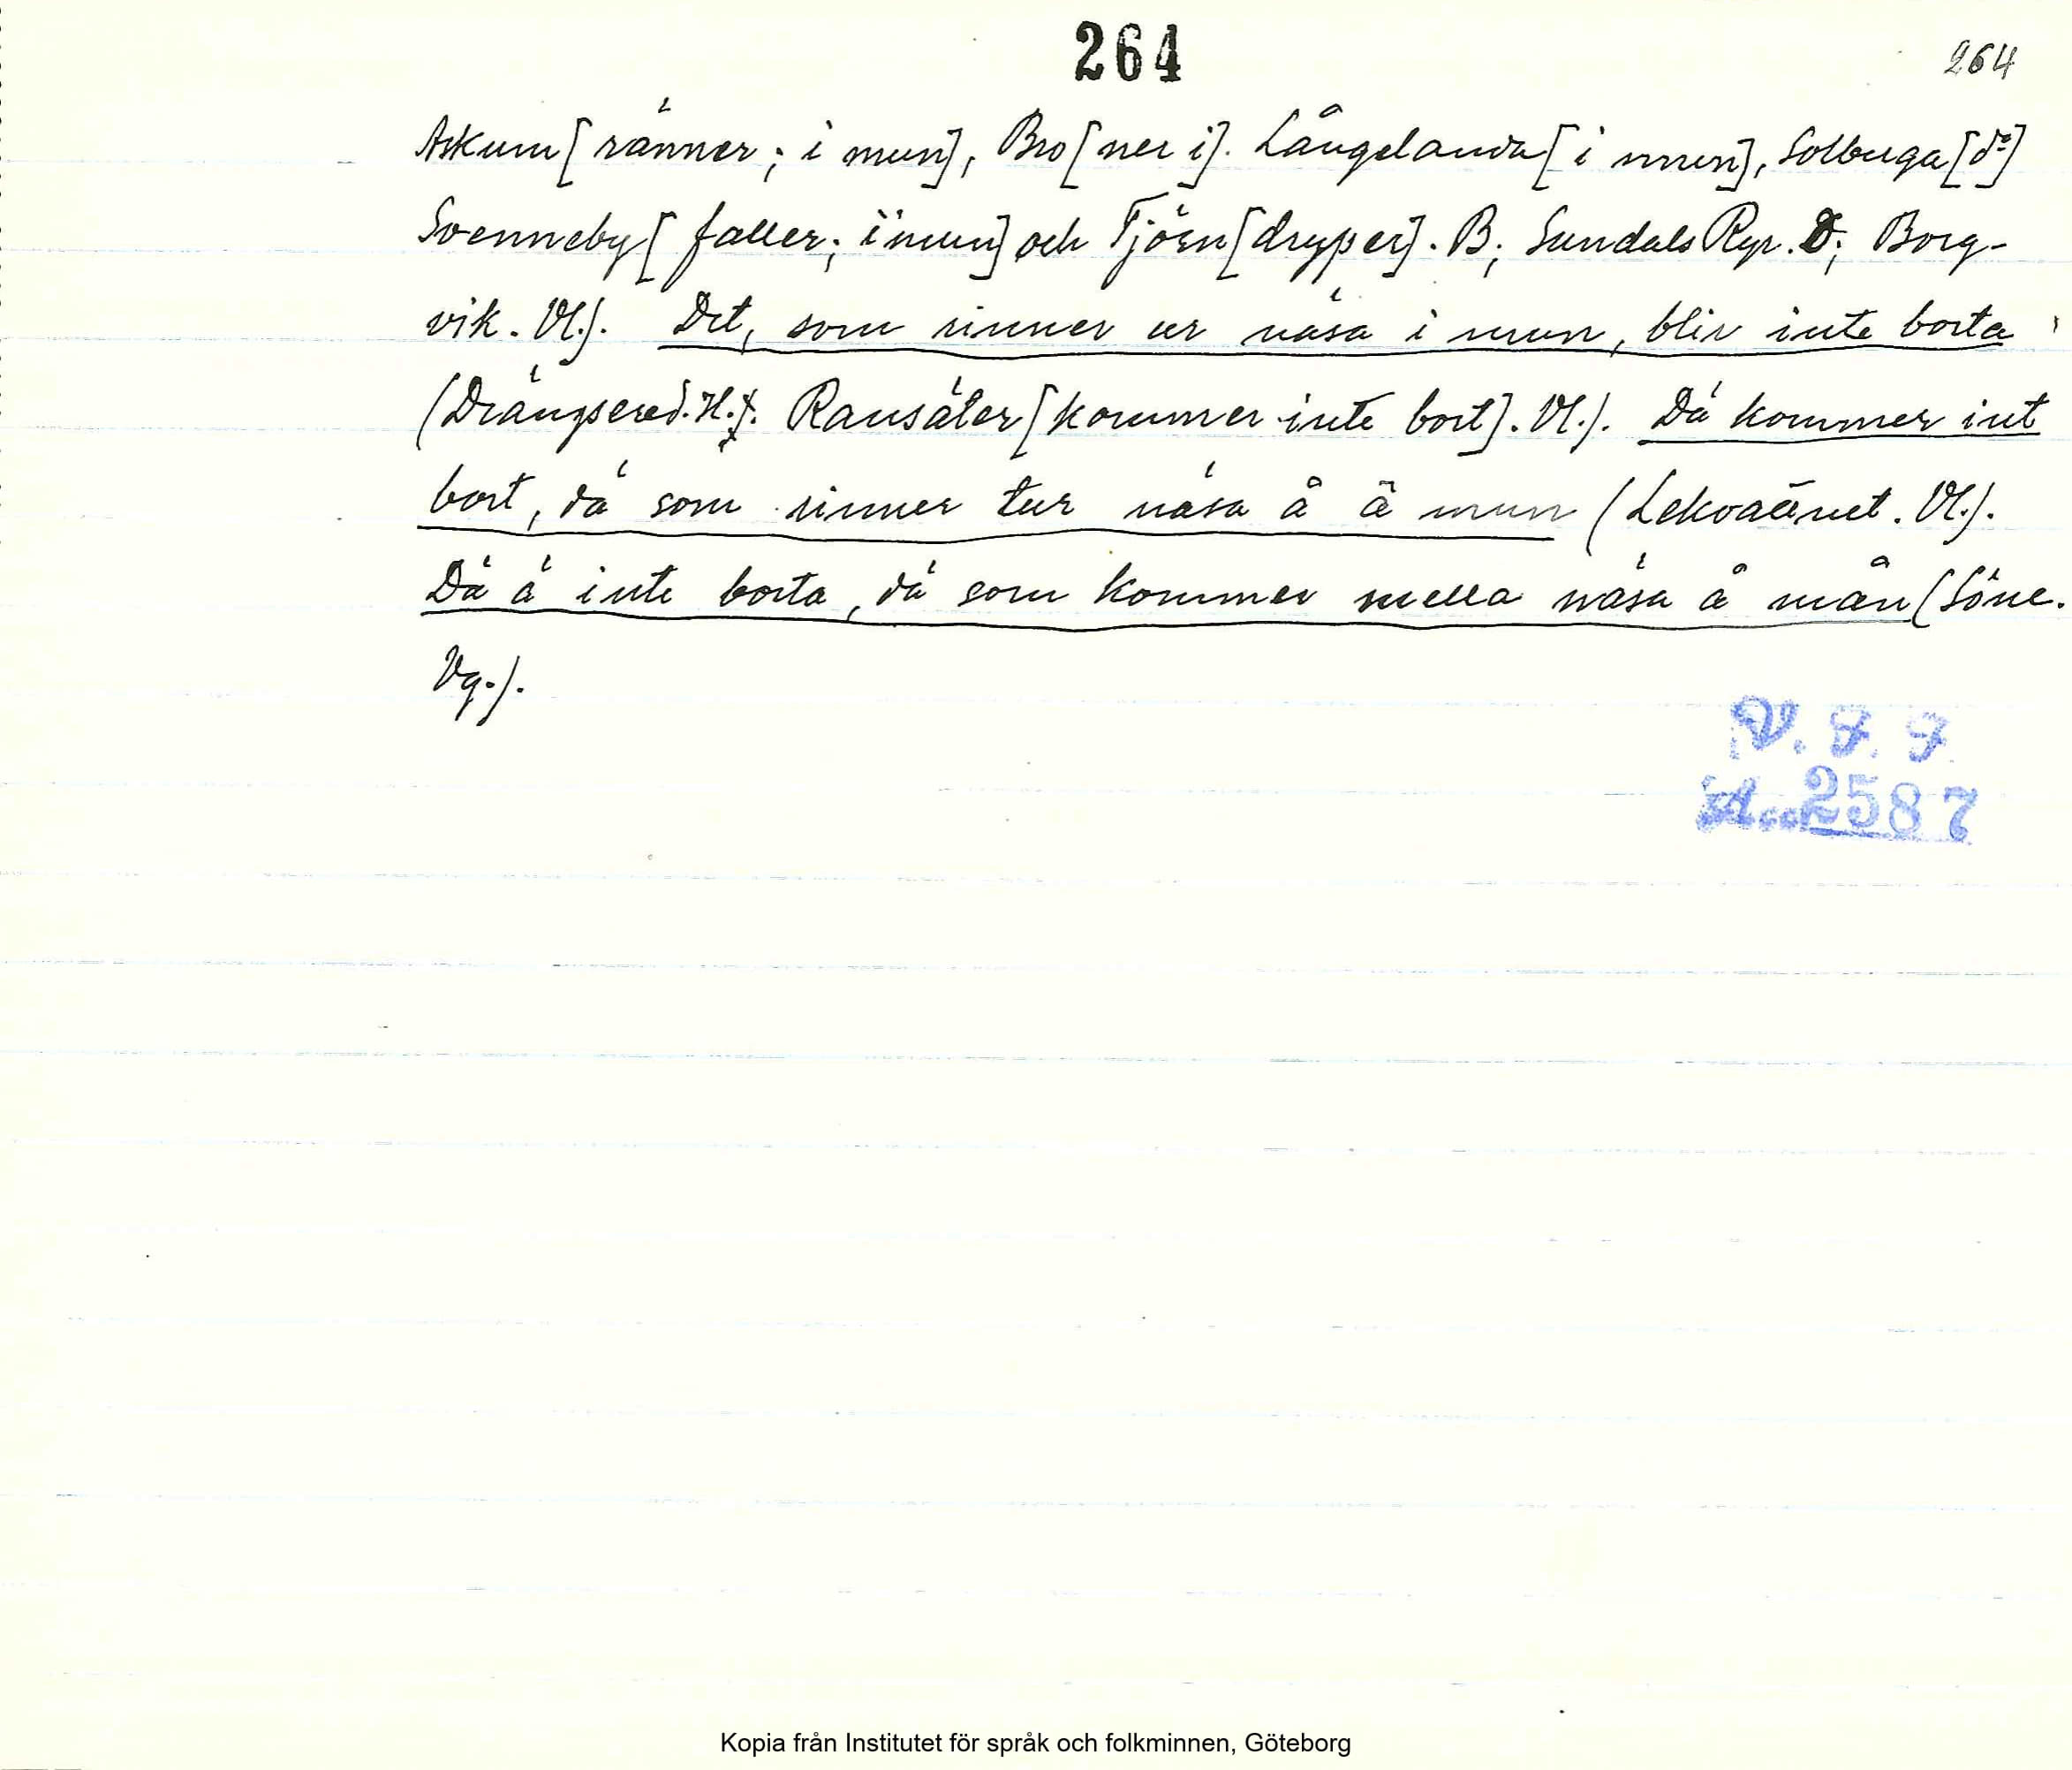 264
264
Askum [ränner; i mun], Bro [ner i]. Långelanda [i mun], Solberga [d:o]
Svenneby [faller; i mun] och Tjörn [dryper]. B; Sundals Ryr. D; Borg-
vik. Vl.). Det, som rinner ur näsa i mun, blir inte borta
(Drängsered. H.; Ransäter [kommer inte bort]. Vl.). Dä kommer int
bort, dä som rinner tur näsa å ä mun (Lekvattnet. Vl.).
Dä ä inte borta, dä som kommer mella näsa å mån (Söne.
Vg.).
V. F. F.
Acc. 2587
Kopia från Institutet för språk och folkminnen, Göteborg